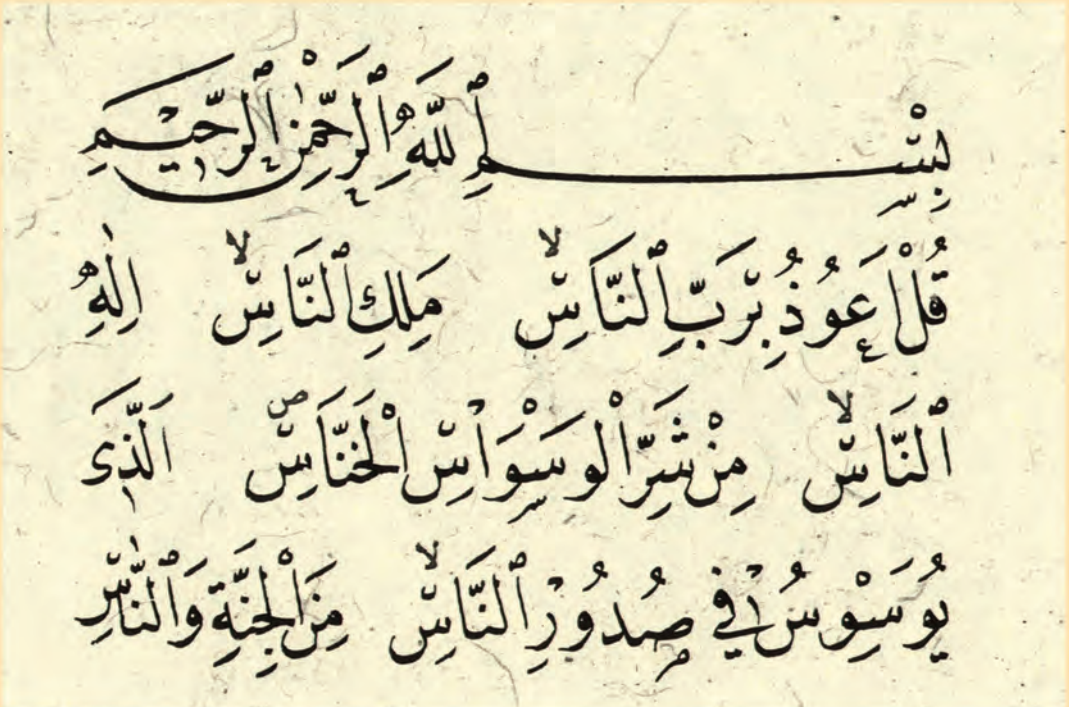 بِسْمِ ٱللّٰهِ ٱلرَّحْمٰنِ ٱلرَّحِيمِ
قُلْ اَعُوذُ بِرَبِّ ٱلنَّاسِۙ مَلِكِ ٱلنَّاسِۙ اِلٰهِ
ٱلنَّاسِۙ مِنْ شَرِّ الْوَسْوَاسِ الْخَنَّاسِۖ اَلَّذ۪ى
يُوَسْوِسُ ف۪ي صُدُورِ ٱلنَّاسِۙ مِنَ الْجِنَّةِ وَٱلنَّاسِ